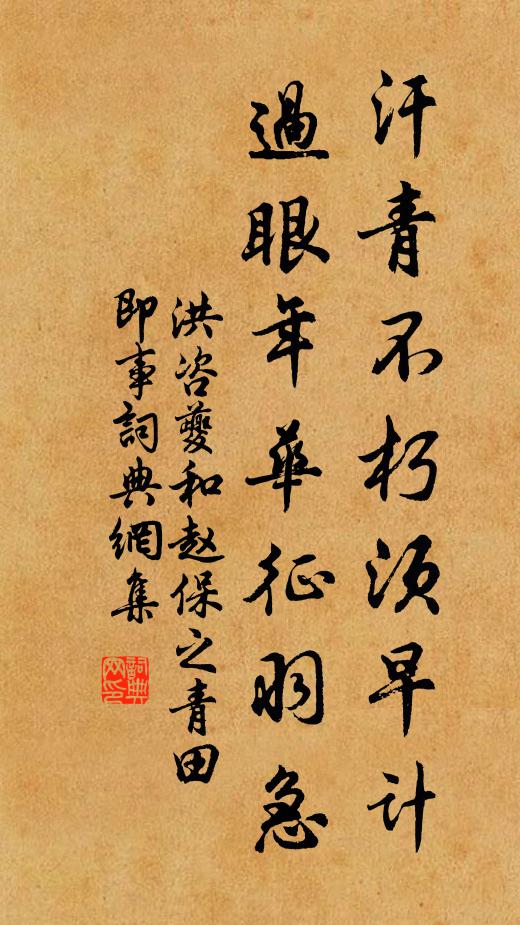 汗青不朽须早计
過眼年華征羽急
洪咨夔和赵保之青田
即事詞典網集
詞典网印